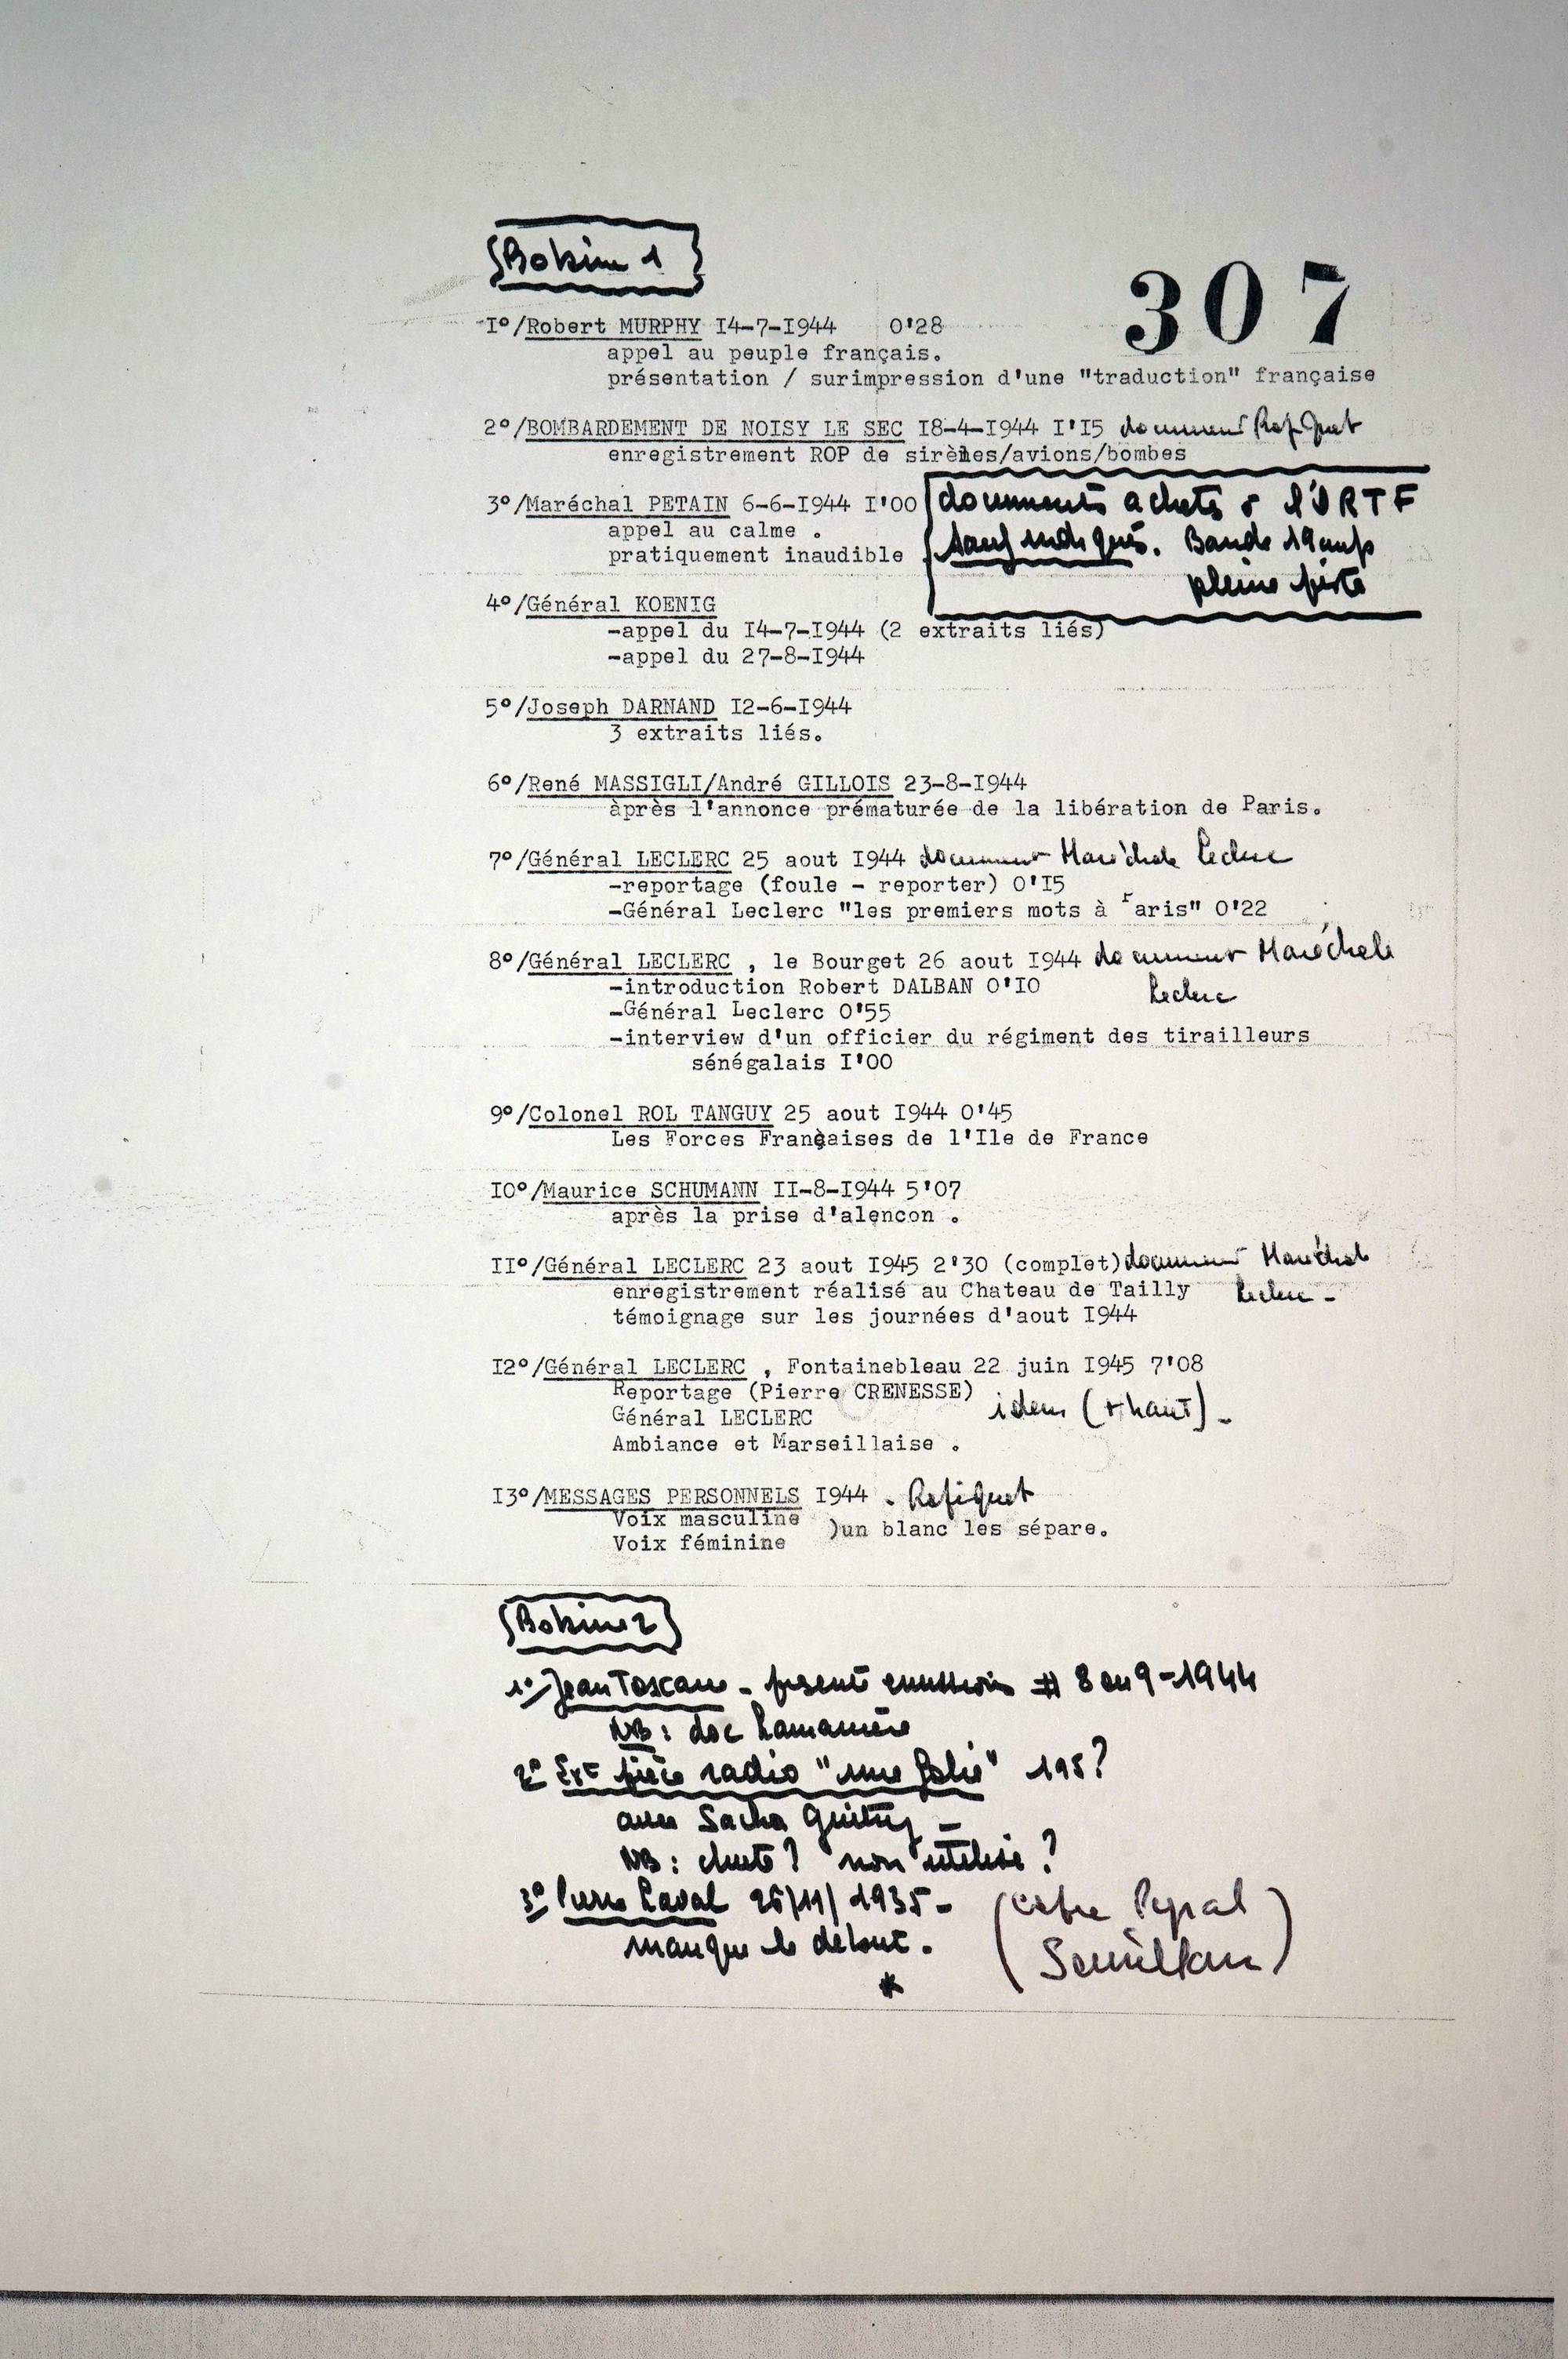 Bobine 1
307
I°/Robert MURPHY I4-7-I944 0'28
appel au peuple français.
présentation / surimpression d'une "traduction" française
2°/BOMBARDEMENT DE NOISY LE SEC I8-4-I944 I'I5 document
enregistrement ROP de sirènes/avions/bombes
3°/Maréchal PETAIN 6-6-I944 I'00
appel au calme .
pratiquement inaudible
documents achetés à l'ORTF
sauf indiqués. Bande 19 cm/s
pleine piste
4°/Général KOENIG
-appel du I4-7-I944 (2 extraits liés)
-appel du 27-8-I944
5°/Joseph DARNAND I2-6-I944
3 extraits liés.
6°/René MASSIGLI/André GILLOIS 23-8-I944
àprès l'annonce prématurée de la libération de Paris.
7°/Général LECLERC 25 aout I944 document Maréchale Leclerc
-reportage (foule - reporter) 0'I5
-Général Leclerc "les premiers mots à Paris" 0'22
8°/Général LECLERC , le Bourget 26 aout I944 document Maréchale
Leclerc
-introduction Robert DALBAN 0'IO
-Général Leclerc 0'55
-interview d'un officier du régiment des tirailleurs
sénégalais I'00
9°/Colonel ROL TANGUY 25 aout I944 0'45
Les Forces Françaises de l'Ile de France
IO°/Maurice SCHUMANN II-8-I944 5'07
après la prise d'alençon .
II°/Général LECLERC 23 aout I945 2'30 (complet) document Maréchale
enregistrement réalisé au Chateau de Tailly Leclerc -
témoignage sur les journées d'aout I944
I2°/Général LECLERC , Fontainebleau 22 juin I945 7'08
Reportage (Pierre CRENESSE)
Général LECLERC idem (+ haut) -
Ambiance et Marseillaise .
I3°/MESSAGES PERSONNELS I944 .
Voix masculine
Voix féminine )un blanc les sépare.
Bobine 2
1°/ Jean Toscane - présente émission # 8 ou 9-1944
NB: doc
2° Ext pièce radio "une folie" 195?
avec Sacha Guitry -
NB: chute? non utilisé?
3° Pierre Laval 26/11/1935 -
manque le début.
*